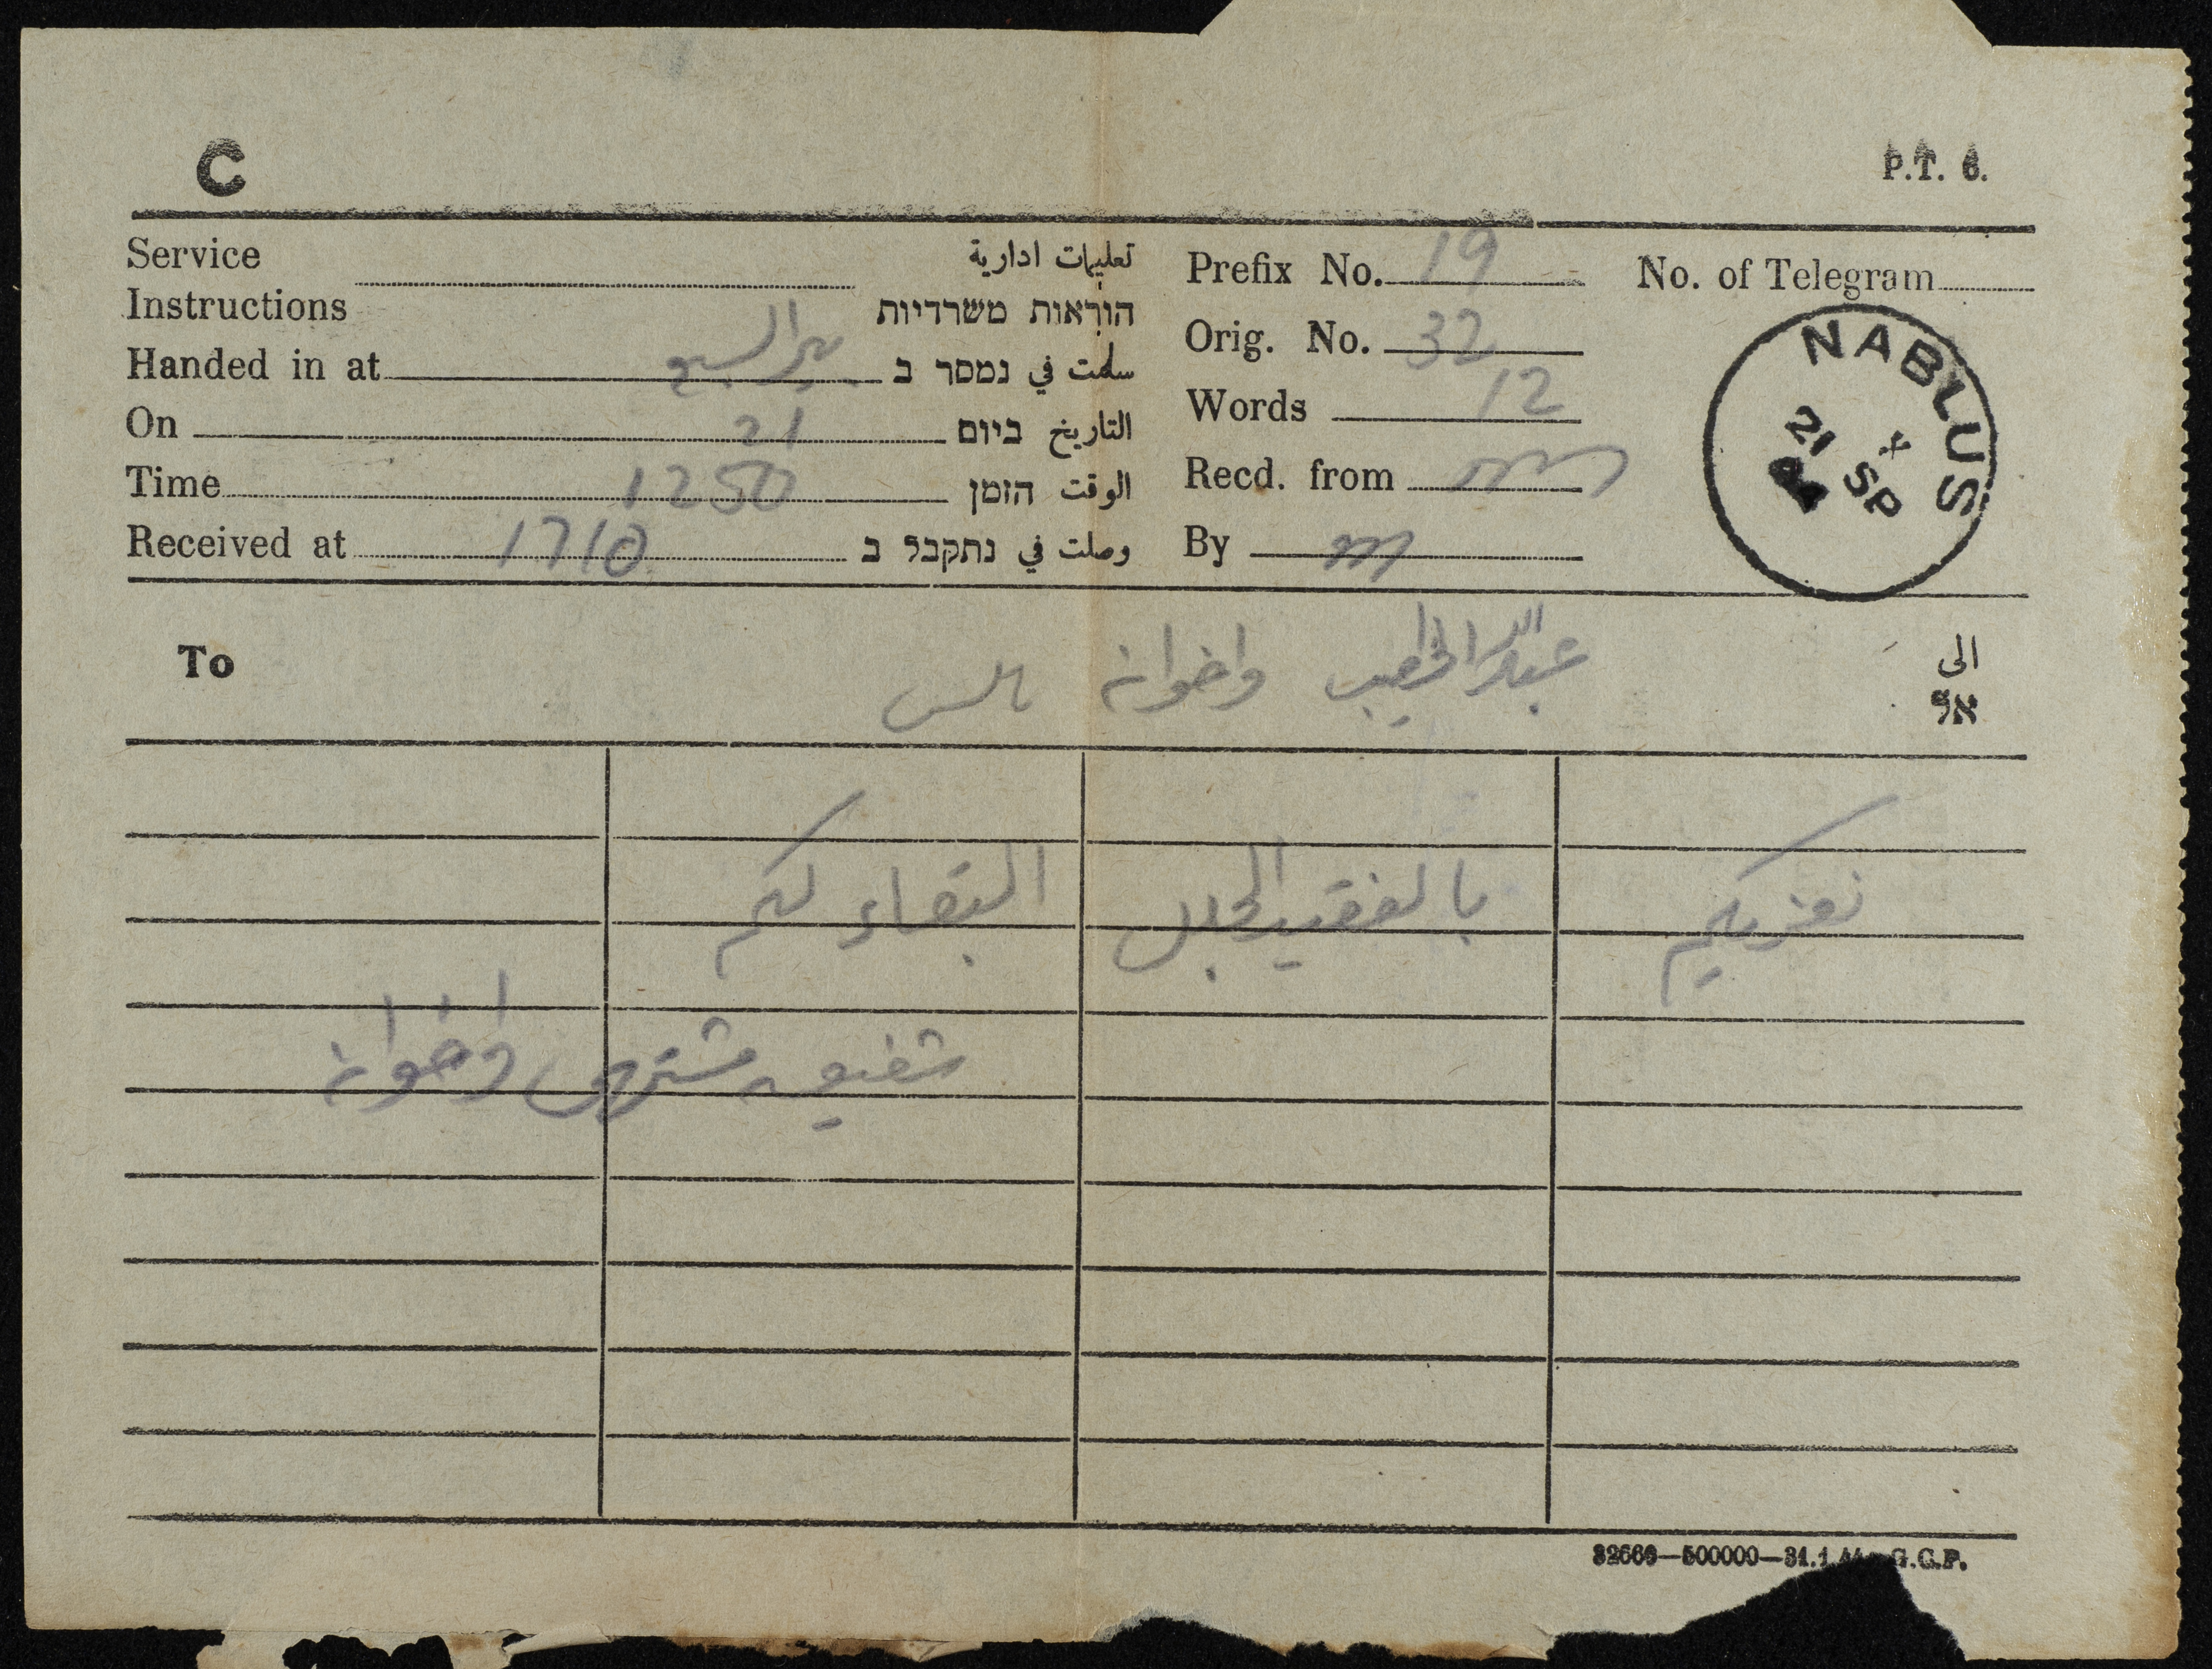 C
P.T. 6.
Service Instructions تعليمات ادارية הוראות משרדיות
Handed in at بير السبع سلمت في נמסר ב
On 21 التاريخ ביום
Time 1250 الوقت הזמן
Received at 1710 وصلت في נתקבל ב
Prefix No. 19
No. of Telegram
Orig. No. 32
Words 12
Recd. from
By
NABLUS
21 SP
To عبدالله الخطيب واخوانه نابلس الى אל
نعزيكم بالفقيد الجليل البقاء لكم
شفيق مشتهى واخوانه
32669—500000—31.1.44 G.C.P.